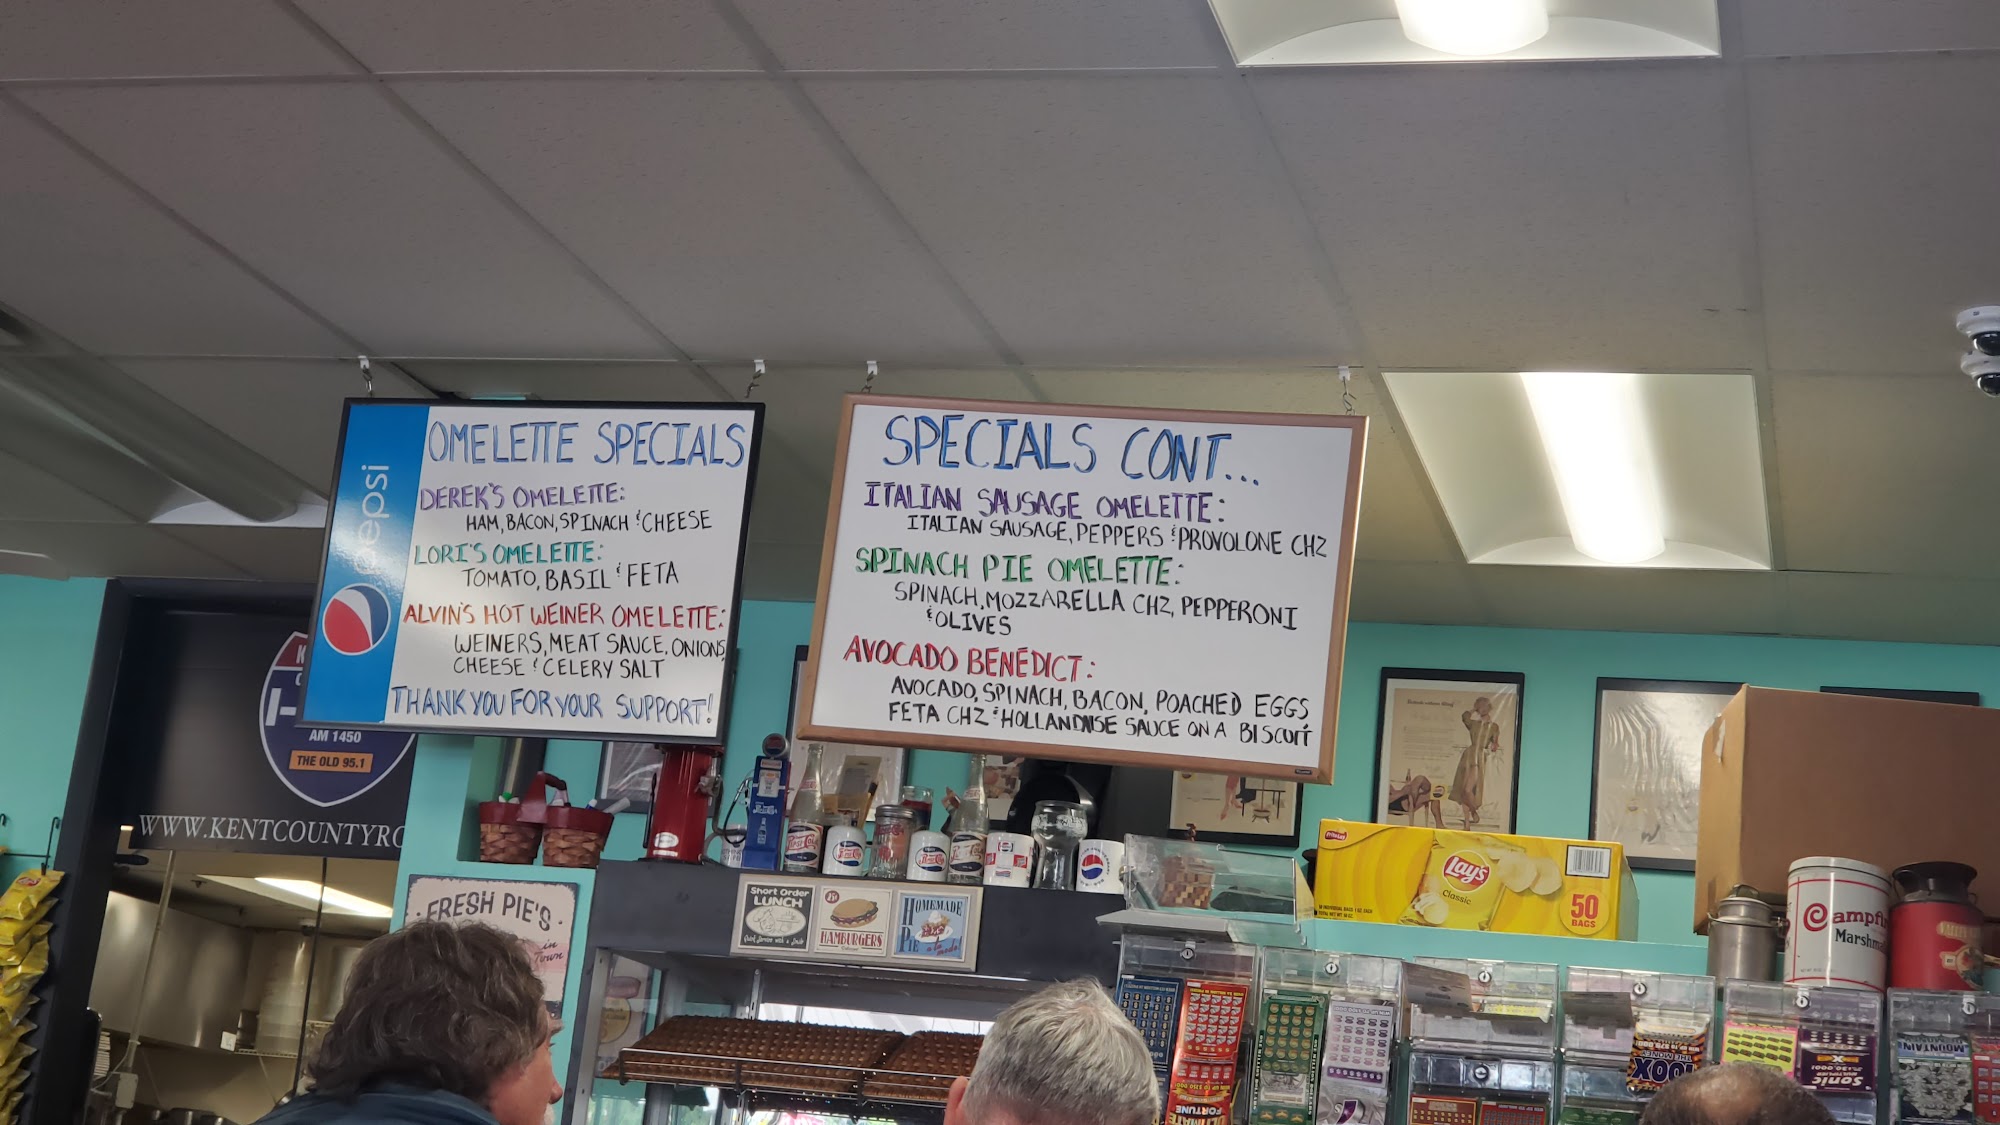 OMELETTE SPECIALS
DEREK'S OMELETTE:
HAM, BACON, SPINACH & CHEESE
LORI'S OMELETTE:
TOMATO, BASIL & FETA
ALVIN'S HOT WEINER OMELETTE:
WEINERS, MEAT SAUCE, ONIONS,
CHEESE & CELERY SALT
THANK YOU FOR YOUR SUPPORT!
pepsi
SPECIALS CONT...
ITALIAN SAUSAGE OMELETTE:
ITALIAN SAUSAGE, PEPPERS & PROVOLONE CHZ
SPINACH PIE OMELETTE:
SPINACH, MOZZARELLA CHZ, PEPPERONI
& OLIVES
AVOCADO BENEDICT:
AVOCADO, SPINACH, BACON, POACHED EGGS
FETA CHZ & HOLLANDAISE SAUCE ON A BISCUIT
AM 1450
THE OLD 95.1
WWW.KENTCOUNTYRO
FRESH PIE'S
in
Town
Short Order
LUNCH
HAMBURGERS
HOMEMADE
PIE
a la
mode!
Lay's
Classic
50
BAGS
Campfi
Marshm
100X
THE MONEY
Sonic
MOUNTAIN
ULTIMATE
FORTUNE